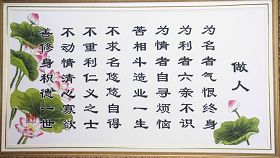 做人
为名者气恨终身
为利者六亲不识
为情者自寻烦恼
苦相斗造业一生
不求名悠悠自得
不重利仁义之士
不动情清心寡欲
善修身积德一世